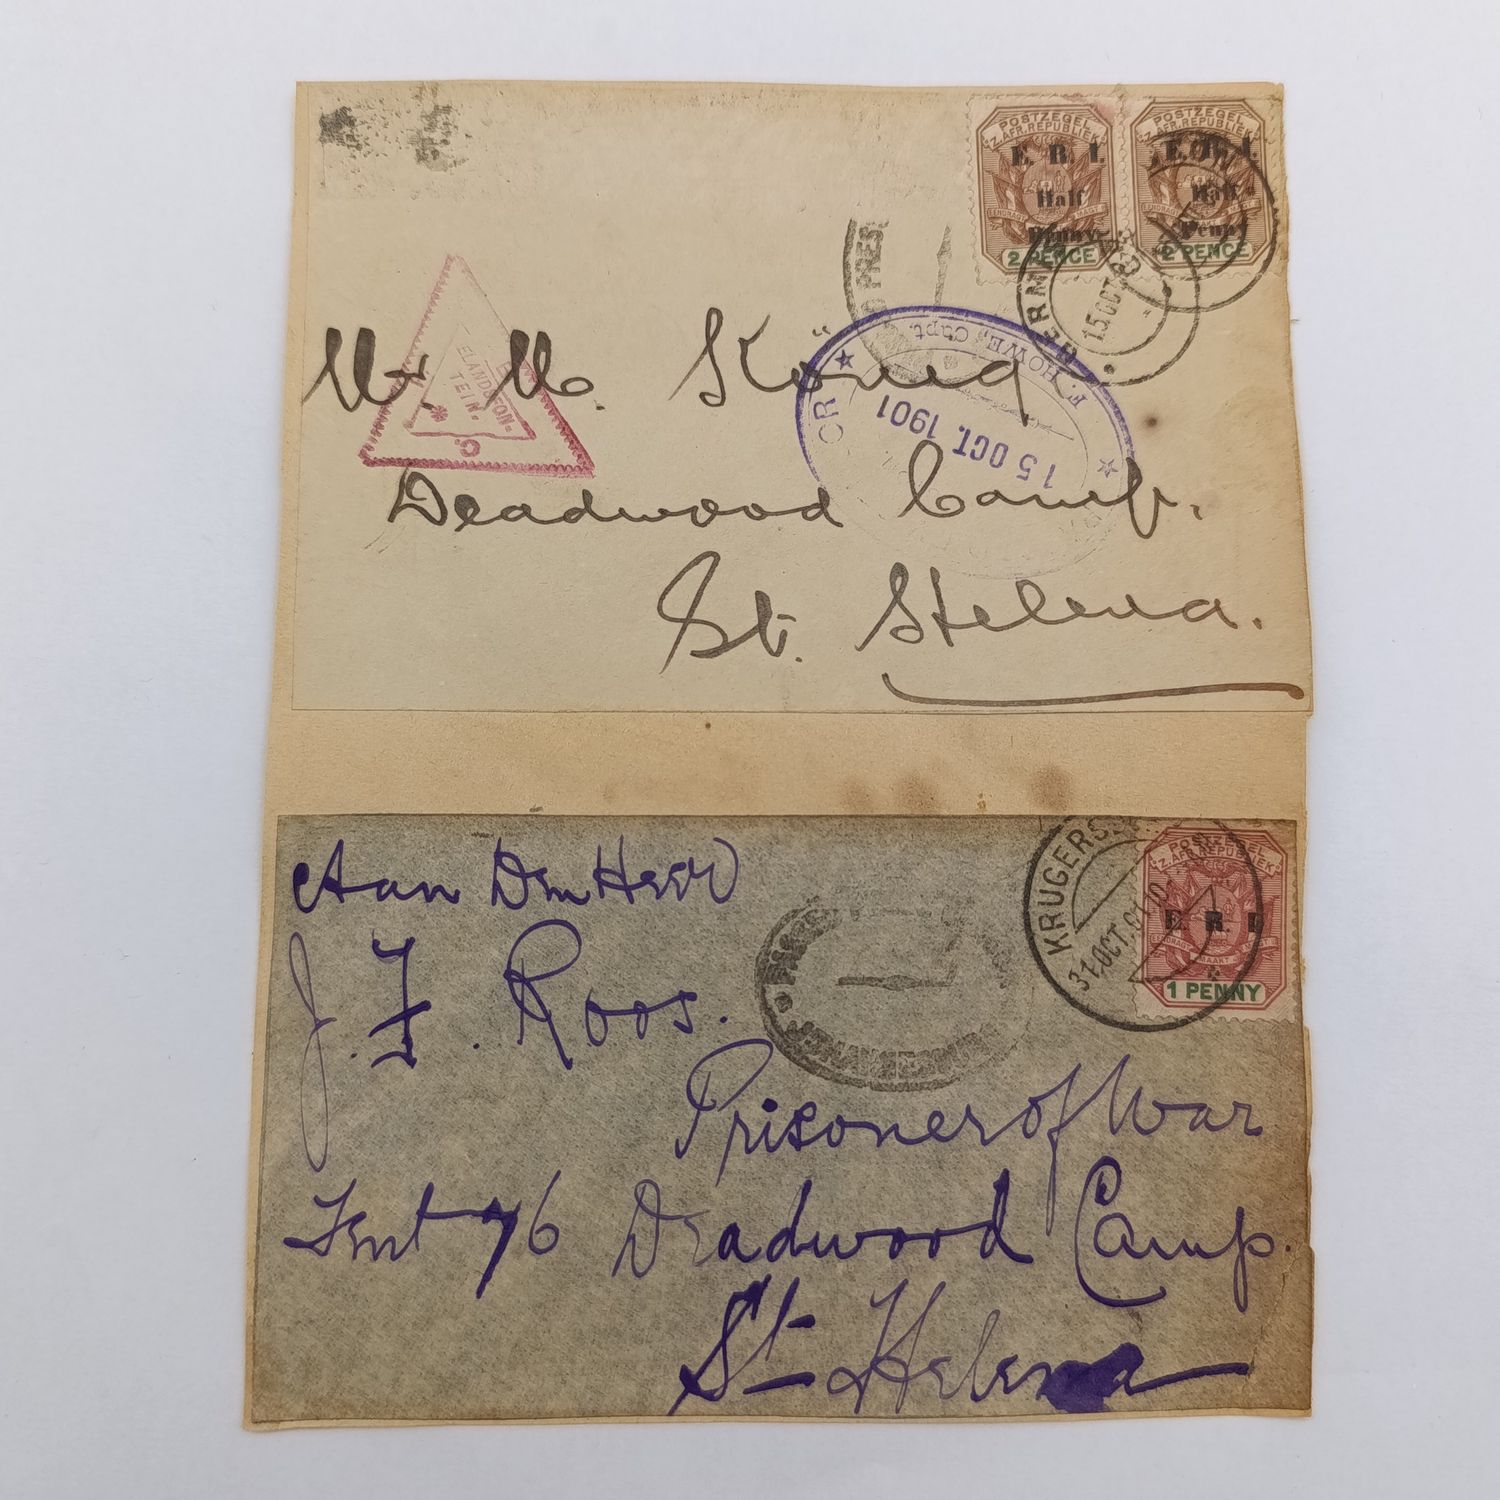 POSTZEGEL
Z. AFR. REPUBLIEK
E. R. I.
Half
Penny
EENDRAGT MAAKT
2 PENCE
POSTZEGEL
Z. AFR. REPUBLIEK
E. R. I.
Half
Penny
2 PENCE
GERM
15 OCT
ELANDSFON-
TEIN.
C.
F. HOWE, Capt.
15 OCT. 1901
Mr M. König
Deadwood Camp.
St. Helena.
Aan Den Heer
J. F. Roos.
Prisoner of War
Tent 76 Deadwood Camp.
St Helena
KRUGERSD
31 OCT. 01
POSTZEGEL
Z. AFR. REPUBLIEK
E. R. I
MAAKT
1 PENNY